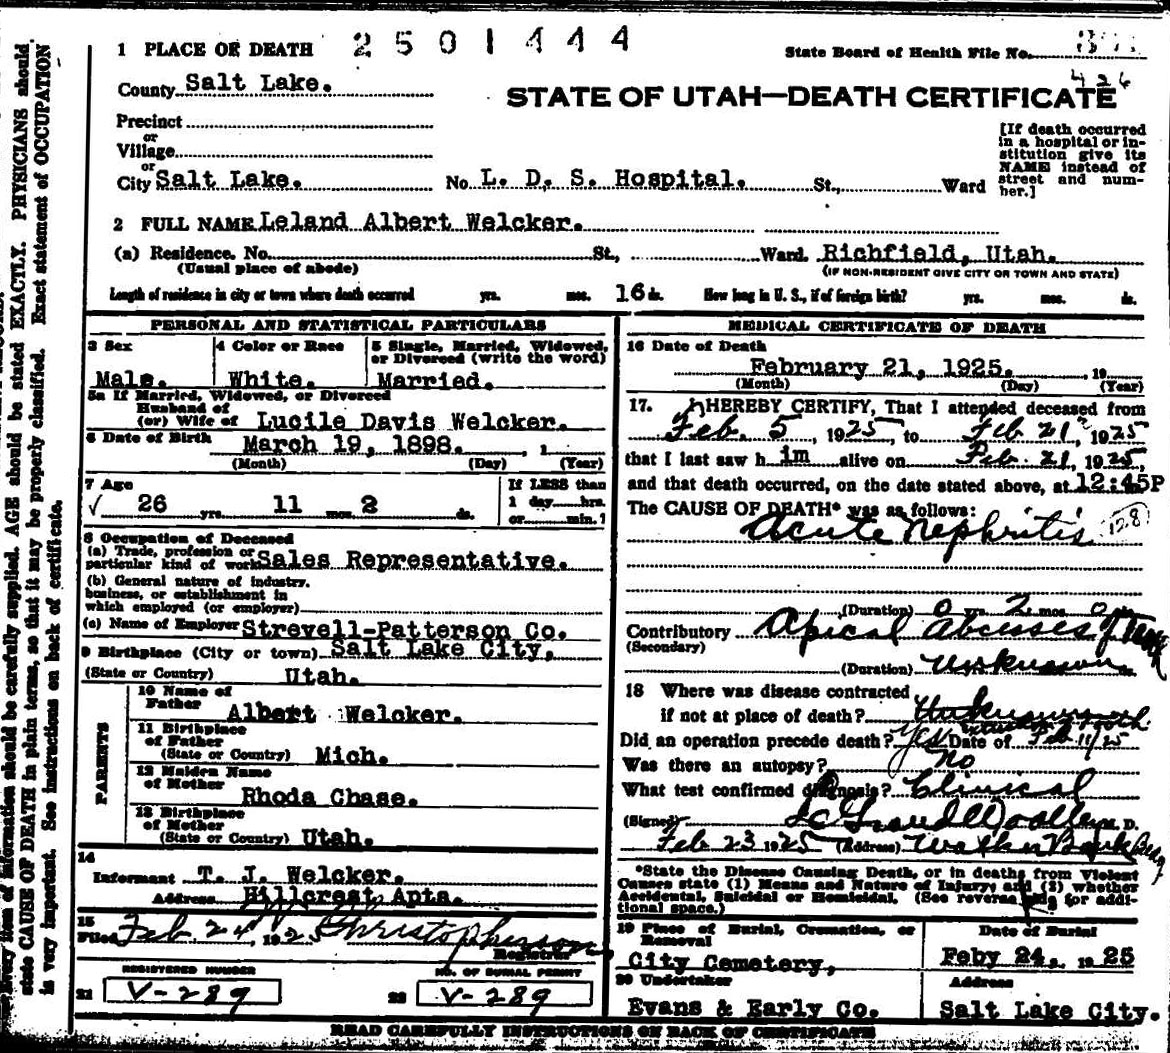 1 PLACE OF DEATH 2501444 State Board of Health File No.
County Salt Lake. 426
STATE OF UTAH—DEATH CERTIFICATE
Precinct
or
Village
or
City Salt Lake. No L. D. S. Hospital. St., Ward
[If death occurred
in a hospital or in-
stitution give its
NAME instead of
street and num-
ber.]
2 FULL NAME Leland Albert Welcker.
(a) Residence. No. St., Ward. Richfield, Utah.
(Usual place of abode) (IF NON-RESIDENT GIVE CITY OR TOWN AND STATE)
Length of residence in city or town where death occurred yrs. mos. 16 ds. How long in U. S., if of foreign birth? yrs. mos. ds.
PERSONAL AND STATISTICAL PARTICULARS
3 Sex 4 Color or Race 5 Single, Married, Widowed,
or Divorced (write the word)
Male. White. Married.
5a If Married, Widowed, or Divorced
Husband of
(or) Wife of Lucile Davis Welcker.
6 Date of Birth March 19, 1898. , 1
(Month) (Day) (Year)
7 Age If LESS than
√ 26 yrs. 11 mos. 2 ds. 1 day hrs.
or min.?
8 Occupation of Deceased
(a) Trade, profession or
particular kind of work Sales Representative.
(b) General nature of industry,
business, or establishment in
which employed (or employer)
(c) Name of Employer Strevell-Patterson Co.
9 Birthplace (City or town) Salt Lake City,
(State or Country) Utah.
PARENTS
10 Name of
Father Albert Welcker.
11 Birthplace
of Father
(State or Country) Mich.
12 Maiden Name
of Mother
Rhoda Chase.
13 Birthplace
of Mother
(State or Country) Utah.
14
Informant T. J. Welcker.
Address Hillcrest Apts.
15
Filed Feb. 24, 1925 Christopherson
Registrar
REGISTERED NUMBER NO. OF BURIAL PERMIT
21 V-289 22 V-289
MEDICAL CERTIFICATE OF DEATH
16 Date of Death
February 21, 1925. , 19
(Month) (Day) (Year)
17. I HEREBY CERTIFY, That I attended deceased from
Feb. 5, 1925, to Feb 21, 1925
that I last saw him alive on Feb. 21, 1925,
and that death occurred, on the date stated above, at 12:45P
The CAUSE OF DEATH* was as follows:
Acute Nephritis 128
(Duration) 0 yrs. 2 mos. 0 ds.
Contributory Apical Abcesses of Teeth
(Secondary)
(Duration) Unknown ds.
18 Where was disease contracted
if not at place of death? Unknown
Did an operation precede death? Yes Date of Feb 11/25
Was there an autopsy? No
What test confirmed diagnosis? Clinical
(Signed) LeGrand Woolley M. D.
Feb 23 1925 (Address) Walker Bank Bldg
*State the Disease Causing Death, or in deaths from Violent
Causes state (1) Means and Nature of Injury; and (2) whether
Accidental, Suicidal or Homicidal. (See reverse side for addi-
tional space.)
19 Place of Burial, Cremation, or
Removal
City Cemetery,
Date of Burial
Feby 24,. 1925
20 Undertaker
Evans & Early Co.
Address
Salt Lake City.
READ CAREFULLY INSTRUCTIONS ON BACK OF CERTIFICATE
Every item of information should be carefully supplied. AGE should be stated EXACTLY. PHYSICIANS should
state CAUSE OF DEATH in plain terms, so that it may be properly classified. Exact statement of OCCUPATION
is very important. See instructions on back of certificate.